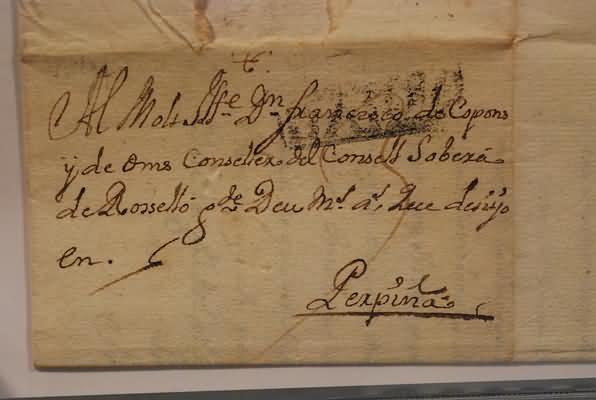 Al Molt Ille Dn francisco de Copons
y de oms Conseller del Consell Soberá
de Rosselló gde Deu Ms as, Que desijo
en.
Perpiñá